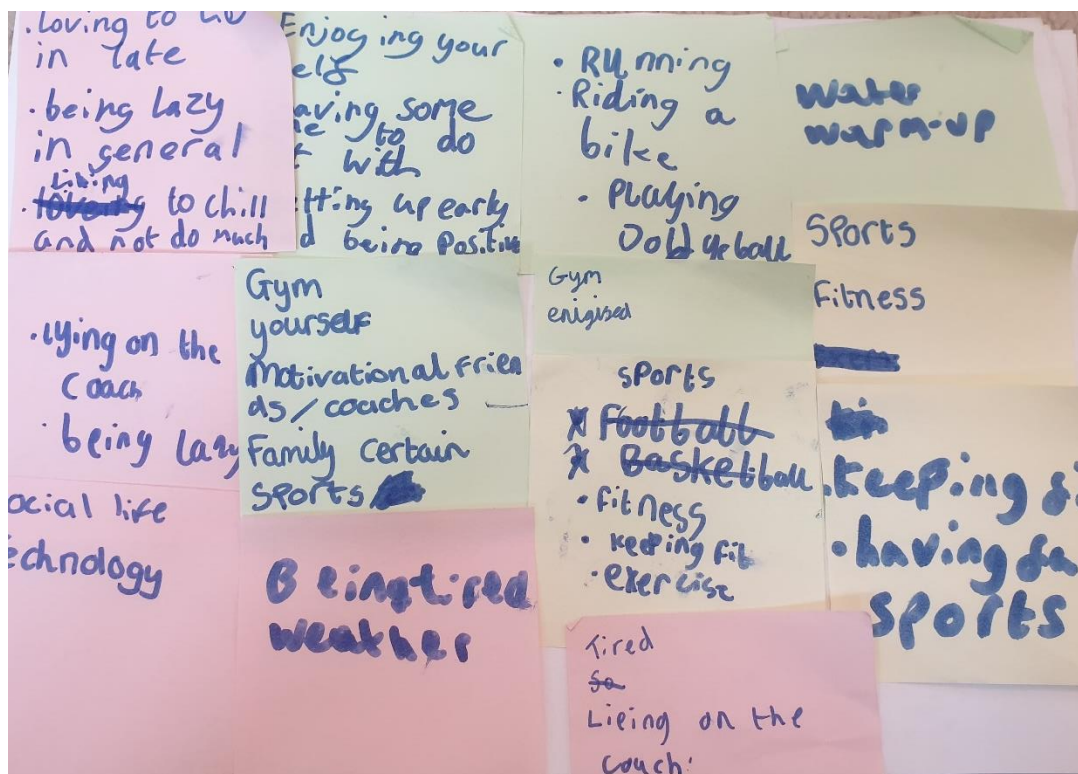 . Loving to
in late
. being lazy
in general
Liking
. to chill
and not do much
Enjoging your
elf
aving some
to do
with
tting up early
d being Positive
. RUnning
. Riding a
bike
. Playing
water
warm-up
Sports
Fitness
. Lying on the
Coach
. being lazy
Gym
yourself
Motivational Frien
ds/coaches
Family Certain
Sports
Gym
enigised
sports
x Football
x Basketball
. fitness
. keeping fit
. exercise
. keeping
. having
sports
ocial life
echnology
Being tired
weather
Tired
So
Lieing on the
couch.